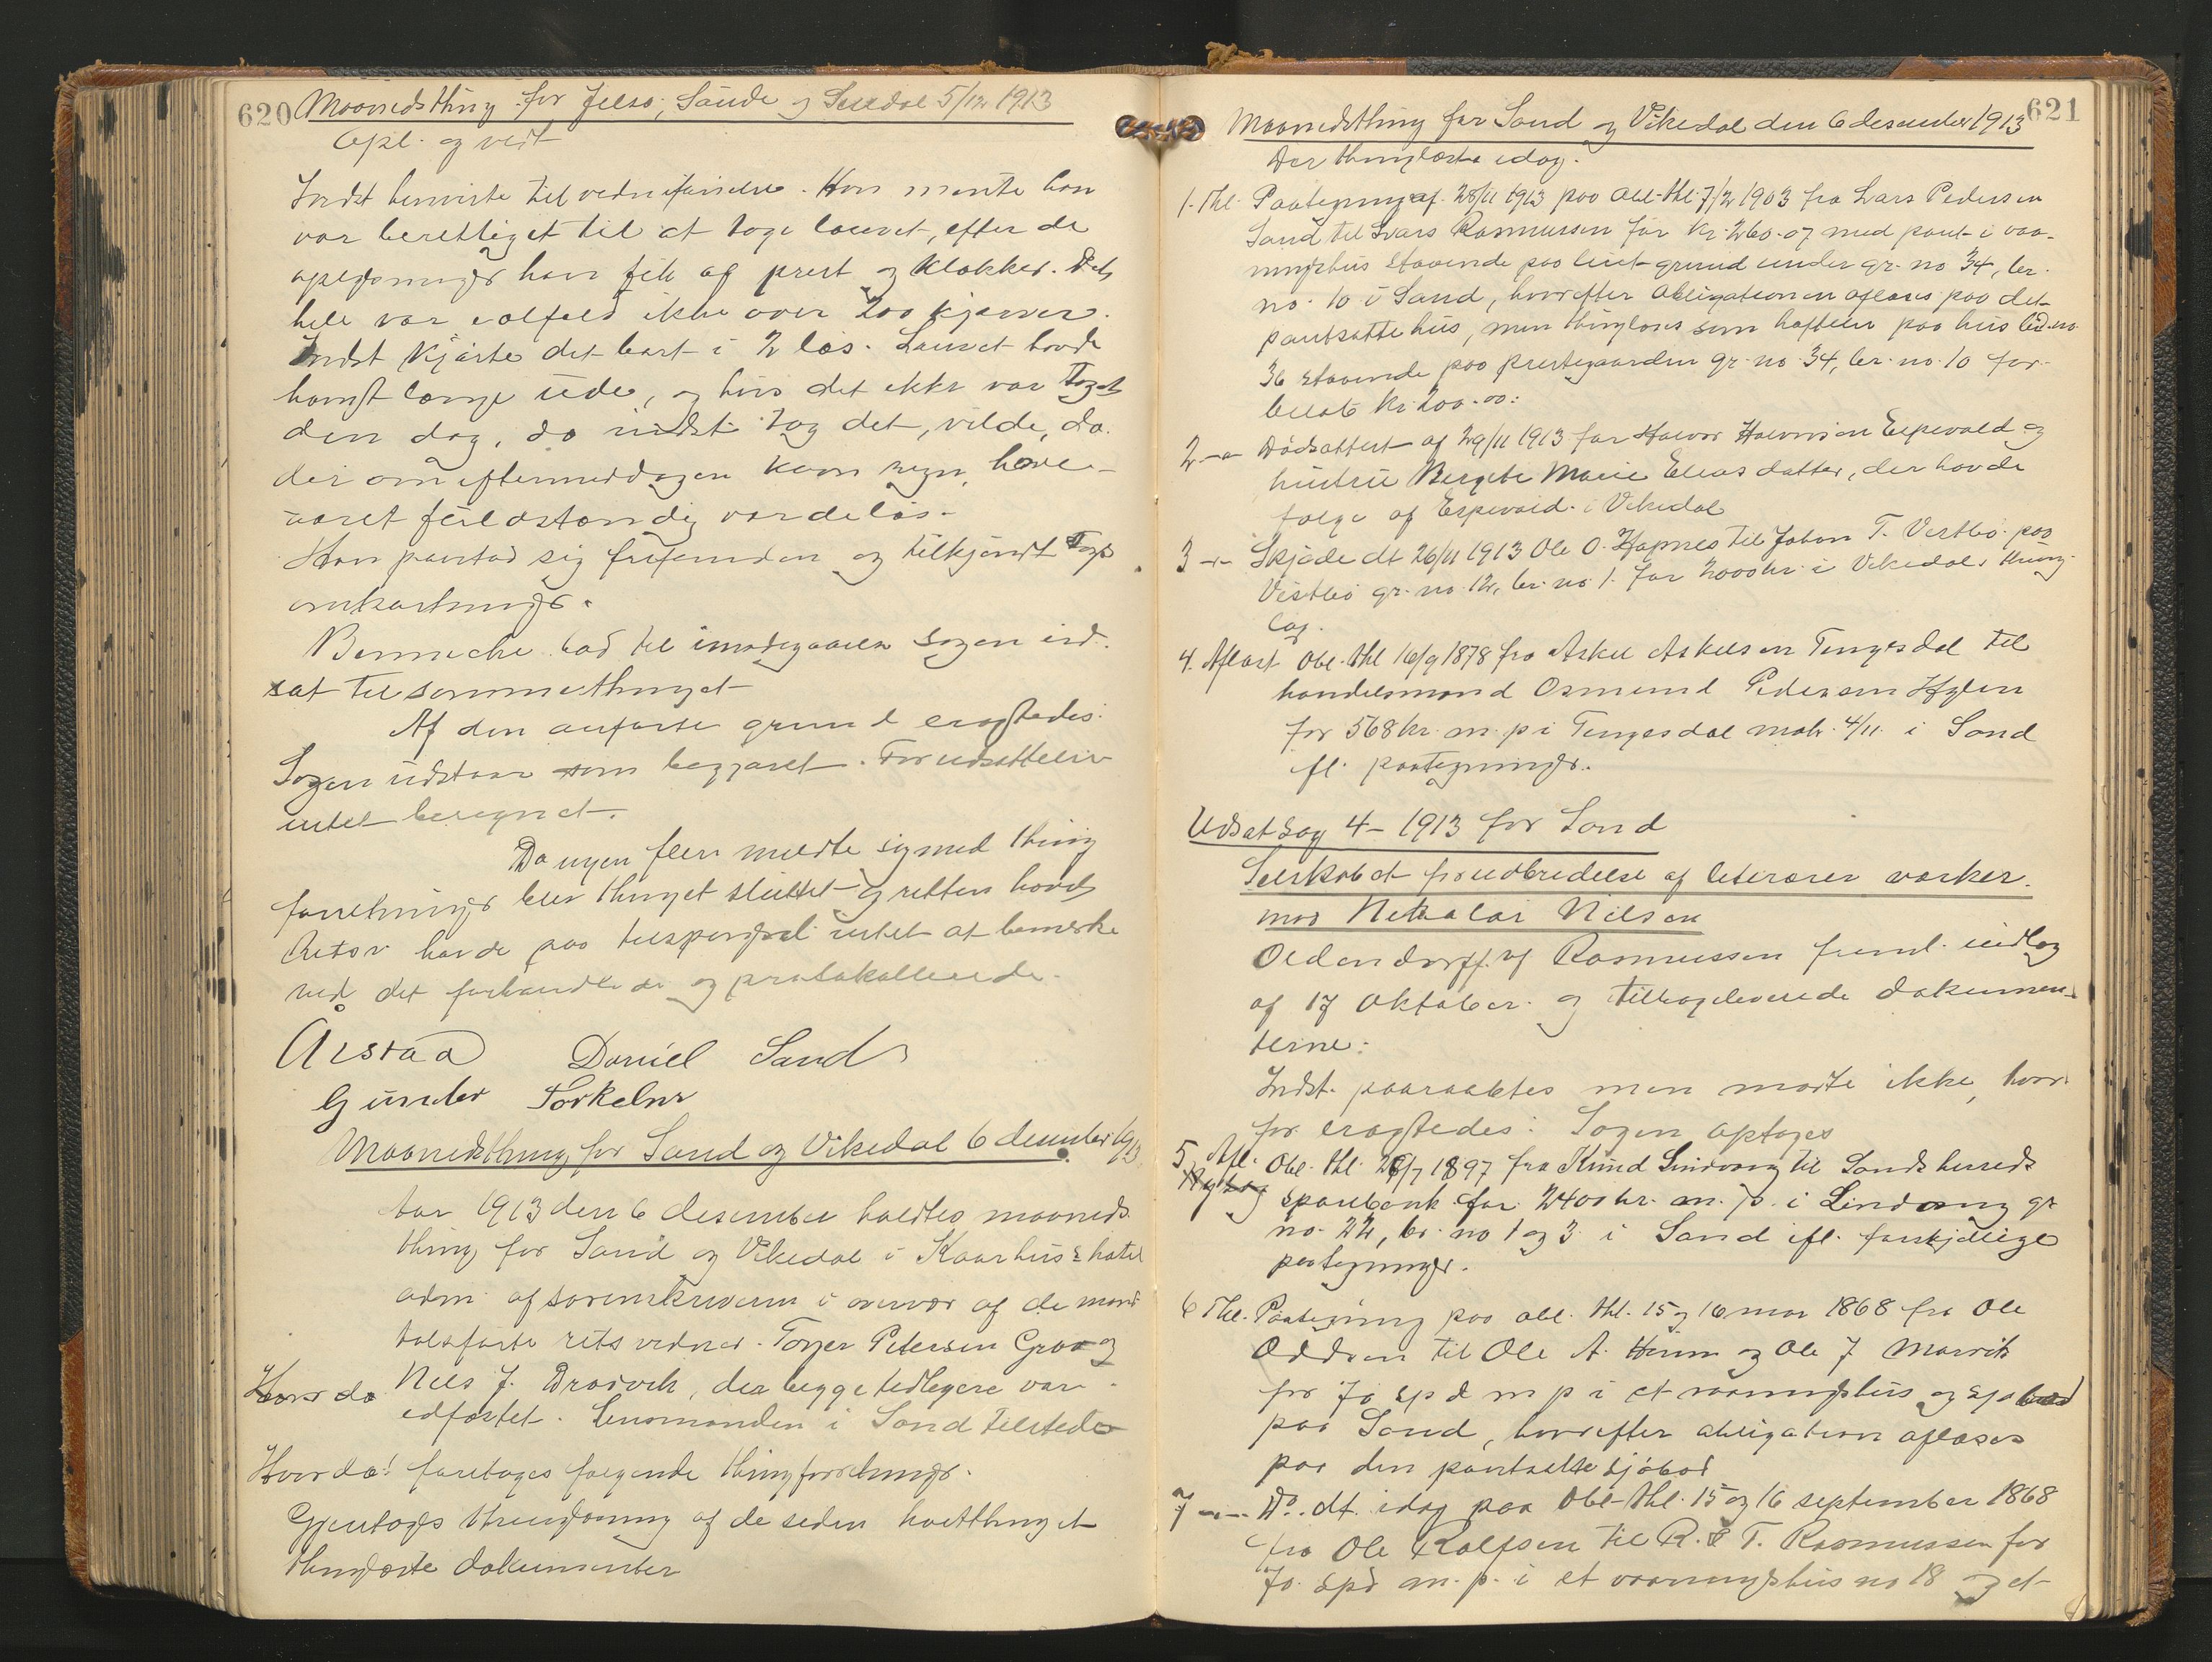 620 Maanedsthing for Jelsø, Saude og Suldal 5/12 1913
Opl. og vedt
Indst henviste til vidneførselen. Han mente han
var berettiget til at tage lauvet, efter de
oplysninger han fik af prest og klokker. Det
hele var ialfald ikke over 200 kjærver.
Indst kjørte det bort i 2 læs. Lauvet havde
hængt længe ude, og hvis det ikke var taget
den dag, da indst tog det, vilde, da
der om eftermiddagen kom regn, have
været fuldstændig værdeløs.
Han paastod sig frifunden og tilkjendt sags
omkostninger.
Benneche bad til imødegaaelse sagen ud-
sat til sommerthinget
Af den anførte grund eragtedes:
Sagen udstaar som begjæret. For udsættelsen
intet beregnet.
Da ingen flere meldte sig med thing
forretninger blev thinget sluttet og rettens hævet
Aktor havde paa tilspørgsel intet at bemerke
ved det forhandlede og protokollerede.
Aarstad Daniel Sand
Gunder Torkelsen
Maanedsthing for Sand og Vikedal 6 desember 1913.
Aar 1913 den 6 desember holdtes maaneds
thing for Sand og Vikedal i Kaarhus's hotel
adm. af sorenskriveren i overvær af de mand
talsførte retsvidner. Torger Petersen Graa og
Nils J. Drarvik, der begge tidligere var
edfæstet. Lensmanden i Sand tilstede
Hvor da
Hvor da! foretoges følgende thingforretninger.
Gjentoges thinglæsning af de siden høstthinget
thinglæste dokumenter
621
Maanedsthing for Sand og Vikedal den 6 desember 1913
Der thinglæstes idag.
1. Thl. Paategning af 28/11 1913 paa obl. thl. 7/2 1903 fra Lars Pedersen
Sand til Lars Rasmussen for kr. 260.07 med pant i vaa-
ningshus staaende paa leiet grund under gr. no 34, br.
no. 10 i Sand, hvorefter obligationen aflæses paa det
pantsatte hus, men thinglæses som heftelse paa hus lid. no
36 staaende paa prestegaarden gr. no. 34, br. no. 10 for
beløb kr. 200.00.
2 -"- Dødsattest af 29/11 1913 for Halvor Halvorsen Espevold og
hustru Bergite Marie Eliasdatter, der havde
folge af Espevold i Vikedal
3 -"- Skjøde dt 26/11 1913 Ole O. Hapnes til Johan T. Vestbø paa
Vestbø gr. no. 12, br. no. 1. for 2000 kr. i Vikedals thing-
lag.
4. Aflæst Obl. thl 16/9 1878 fra Askel Askelsen Tengesdal til
handelsmand Osmund Pedersen Hylen
for 568 kr. m. p i Tengesdal matr. 4/11. i Sand
ifl. paategninger.
Udsat sag 4 – 1913 for Sand
Selskabet for udbredelse af literære værker.
mod Nikolai Nilsen
Oldendorff v/ Rasmussen freml. indlæg
af 17 oktober. og tilbageleverede dokumen-
terne.
Indst. paaraabtes men mødte ikke, hvor-
for eragtedes: Sagen optages
5. Afl. Obl. thl. 26/7 1897 fra Knud Lindvang til Sands herreds
sparebank for 2400 kr. m. p. i Lindvang gr.
no. 22, br. no 1 og 3 i Sand ifl. forskjellige
paategninger.
6 Thl. Paategning paa obl. thl. 15 og 16 mar 1868 fra Ole
Oddsen til Ole A. Heim og Ole J Marvik
for 70 spd m p i et vaaningshus og sjøbod
paa Sand, hvorefter obligationen aflæses
paa den pantsatte sjøbod
7 -"- Do. dt. idag paa obl. thl. 15 og 16 september 1868
fra Ole Rolfsen til R. & T. Rasmussen for
70 spd m. p. i et vaaningshus no 18 og et